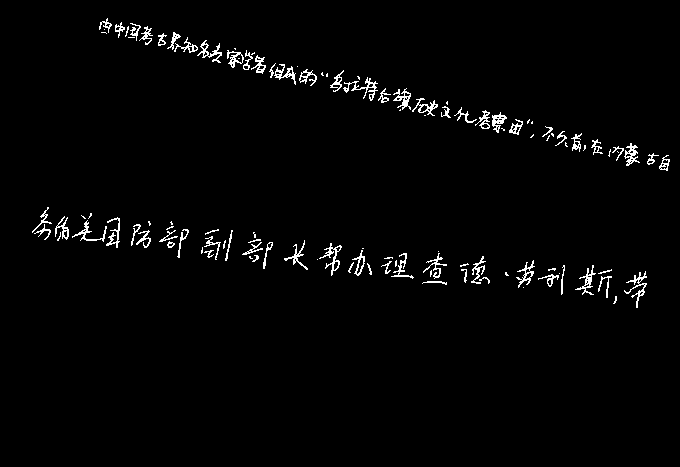 由中国考古界知名专家学者组成的“乌拉特后旗历史文化考察团”,不久前,在内蒙古自
务角美国防部副部长帮办理查德·劳利斯,带